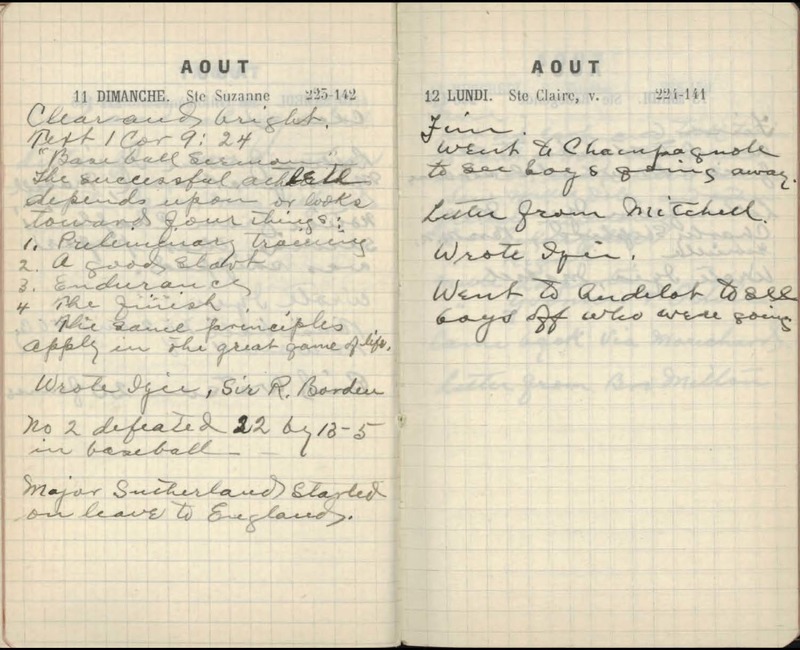 AOUT
11 DIMANCHE. Ste Suzanne 223-142
Clear and bright.
Text 1 Cor 9: 24
"Base ball Sermon"
The successful athlete
depends upon or looks
toward four things:
1. Preliminary training
2. A good start
3. Endurance
4 The finish
The same principles
apply in the great game of life.
Wrote , Sir R. Borden
No 2 defeated 22 by 13-5
in baseball
Major Sutherland started
on leave to England.
AOUT
12 LUNDI. Ste Claire, v. 224-141
Fine.
Went to Champagnole
to see boys going away.
Letter from Mitchell.
Wrote
Went to Andelot to see
boys off who were going